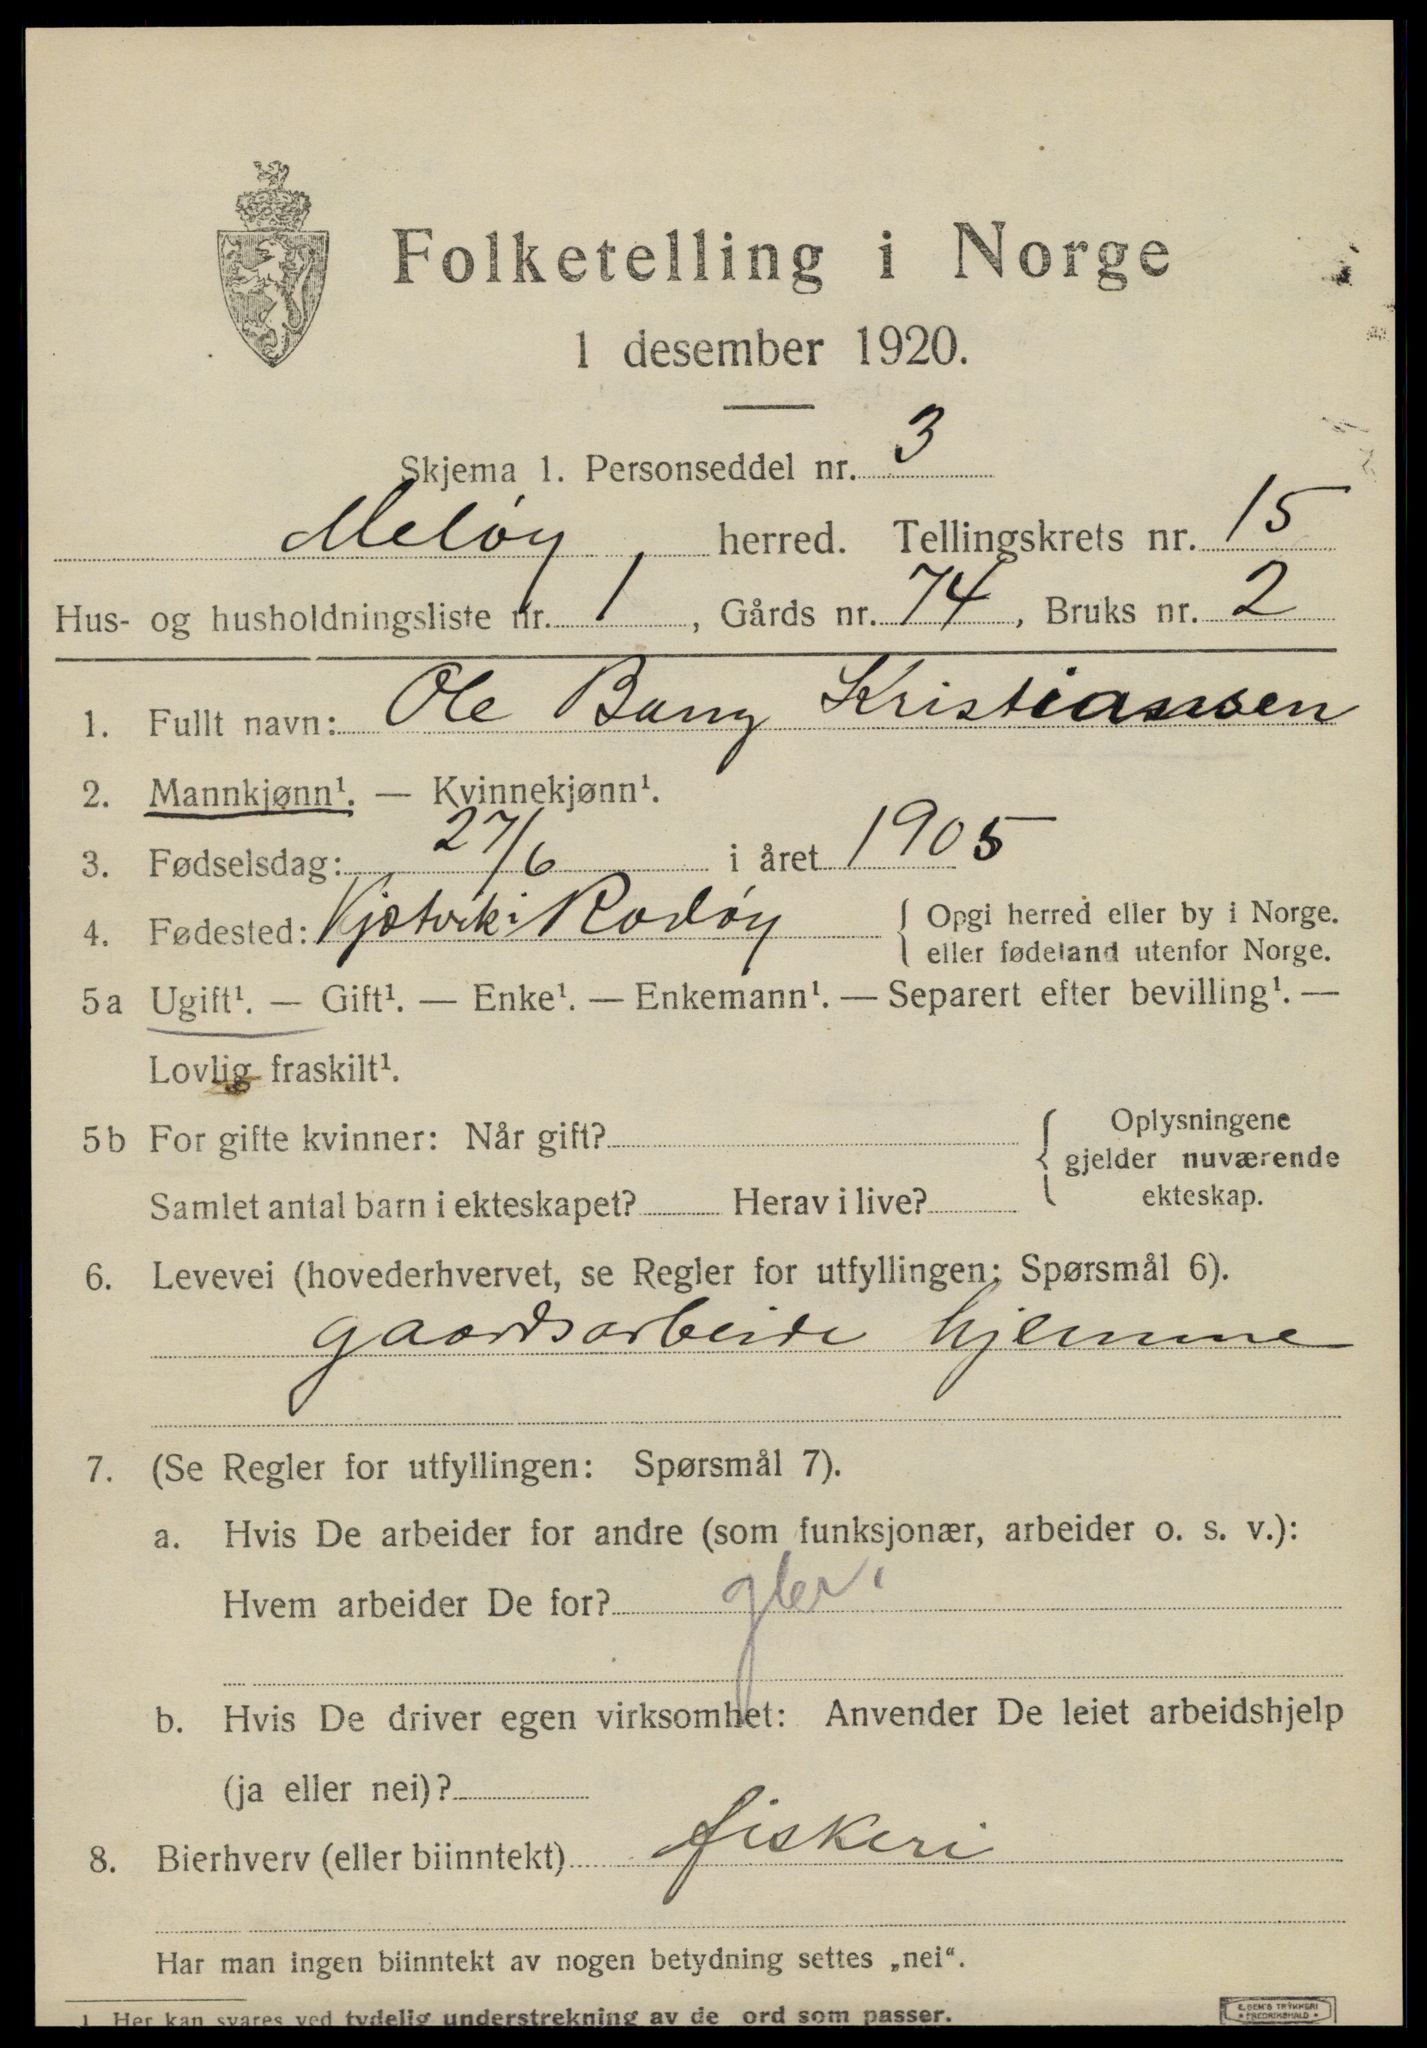 Folketelling i Norge
1 desember 1920.
Skjema 1. Personseddel nr. 3
Meløy, herred. Tellingskrets nr. 15
Hus- og husholdningsliste nr. 1, Gårds nr. 74, Bruks nr. 2
1. Fullt navn: Ole Bang Kristiansen
2. Mannkjønn¹. — Kvinnekjønn¹.
3. Fødselsdag: 27/6 i året 1905
4. Fødested: Kjøtvik i Rødøy { Opgi herred eller by i Norge.
eller fødeland utenfor Norge.
5a Ugift¹. — Gift¹. — Enke¹. — Enkemann¹. — Separert efter bevilling¹. —
Lovlig fraskilt¹.
5b For gifte kvinner: Når gift? { Oplysningene
gjelder nuværende
Samlet antal barn i ekteskapet? Herav i live? ekteskap.
6. Levevei (hovederhvervet, se Regler for utfyllingen: Spørsmål 6).
gaardsarbeide hjemme
7. (Se Regler for utfyllingen: Spørsmål 7).
a. Hvis De arbeider for andre (som funksjonær, arbeider o. s. v.):
Hvem arbeider De for?
b. Hvis De driver egen virksomhet: Anvender De leiet arbeidshjelp
(ja eller nei)?
8. Bierhverv (eller biinntekt) fiskeri
Har man ingen biinntekt av nogen betydning settes „nei“.
1. Her kan svares ved tydelig understrekning av de ord som passer.
E. SEM'S TRYKKERI
FREDRIKSHALD